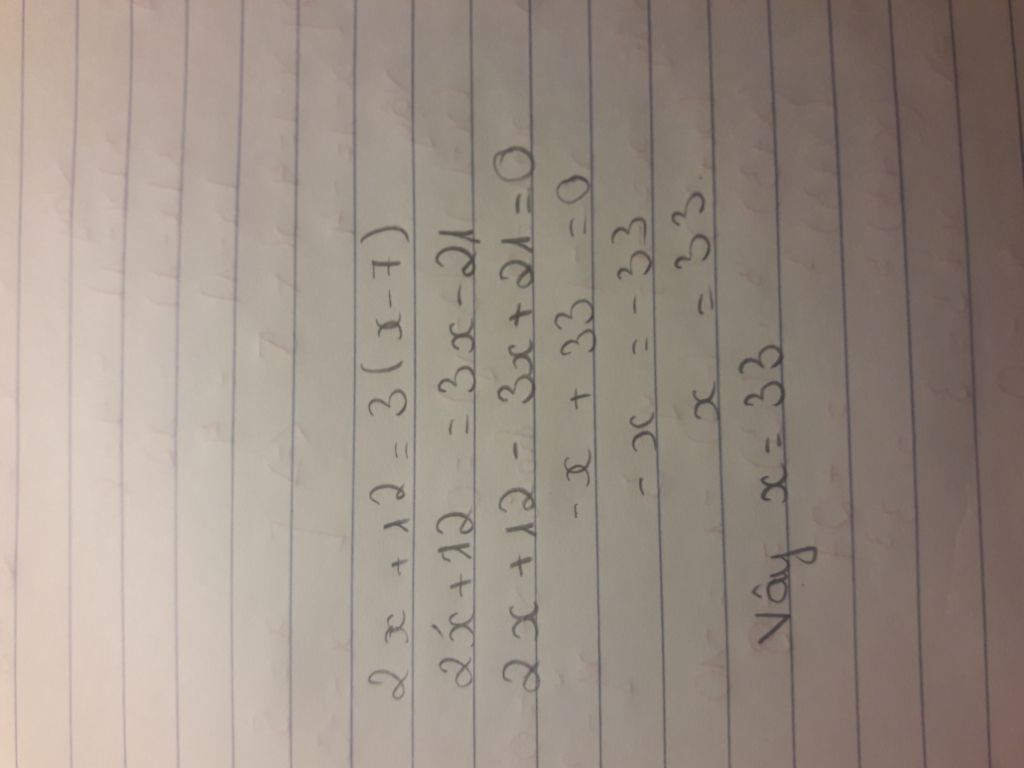 2x + 12 = 3(x - 7)
2x + 12 = 3x - 21
2x + 12 - 3x + 21 = 0
- x + 33 = 0
- x = - 33
x = 33
Vây x = 33